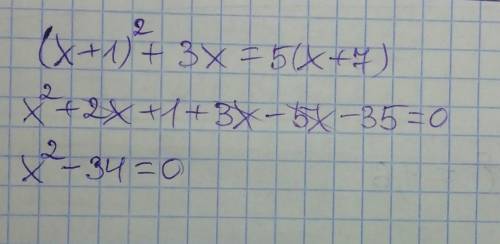 (x+1)²+3x=5(x+7)
x²+2x+1+3x-5x-35=0
x²-34=0